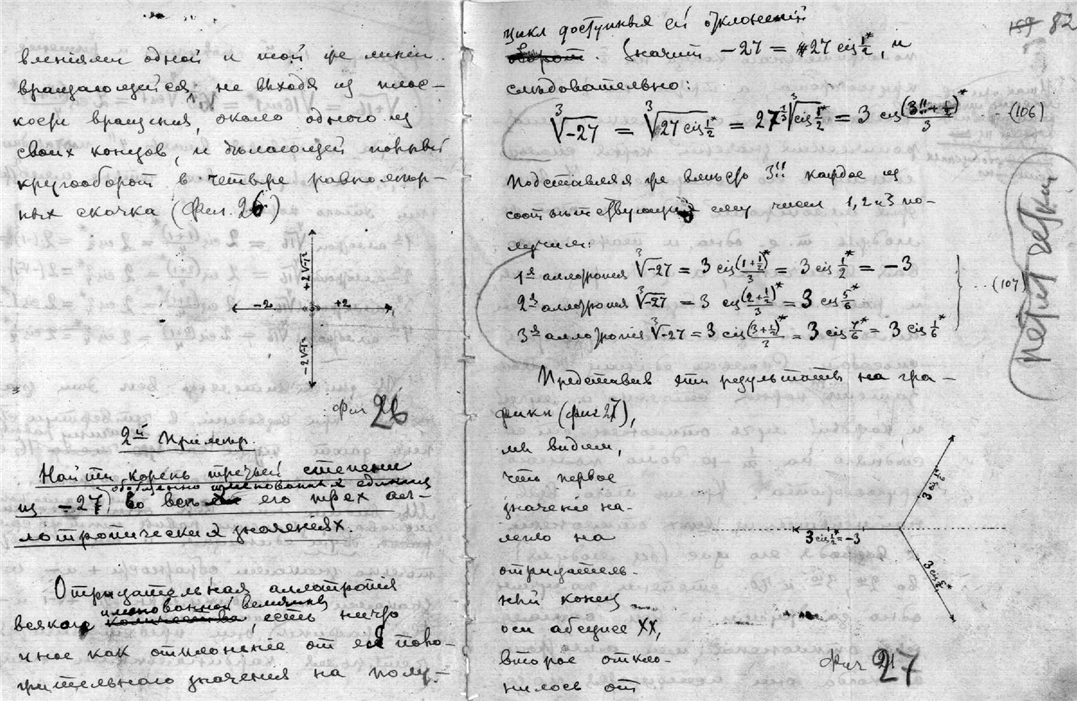 вленіями одной и той же линіи
вращающейся, не выходя из плос-
кости вращения, около одного из
своих концов, и дѣлающей полный
кругооборот в четыре равномѣр-
ных скачка (Фиг. 26)
+2√-1
-2 +2
-2√-1
Фиг 26
2й Примѣр.
Найти корень третьей степени
из -27) во всѣх его трех ал-
лотропических значеніях.
Отрицательная аллотропія
именованной величины
всякаго количества есть нечто
иное как отклоненіе от ея поло-
жительнаго значения на полу-
159 82
цикл доступных ей отклонений
оборот. Значит -27 = 27 cis ½* и
слѣдовательно:
∛-27 = ∛27 cis ½* = 27^⅓ ∛cis ½* = 3 cis (3!!+½)*/3 (106)
Подставляя же вмѣсто 3!! каждое из
соотвѣтствующих ему чисел 1, 2 и 3 по-
лучим:
1я аллотропія ∛-27 = 3 cis (1+½)*/3 = 3 cis ½* = -3
2я аллотропія ∛-27 = 3 cis (2+½)*/3 = 3 cis 5/6* ... (107)
3я аллотропія ∛-27 = 3 cis (3+½)*/3 = 3 cis 7/6* = 3 cis 1/6*
Представив эти результаты на гра-
фики (фиг 27),
мы видим,
что первое
значеніе на-
легло на
отрицатель-
ный конец
оси абсцисс XX,
второе откло-
нилось от
3 cis ½* = -3
Фиг 27